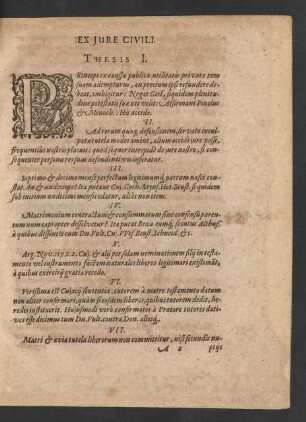 EX JURE CIVILI.
THESIS I.
PRinceps ex causa publicæ utilitatis privato rem
suam ademptum, an precium ipsi refundere de-
beat, ambigitur: Negat Gail, siquidem plenitu-
dine potestatis suæ uti velit: Affirmant Pinellus
& Menoch. Hu accedo.
II.
Ad rerum quoq; defensionem, servato incul-
pata tutela moderamine, alium occidi jure posse,
frequentius nostris placuit: quod signter interpedi ab jure nostro, si con-
sequenter persona rei suæ defendenti vis inferatur.
III.
Septimo & decimo mense perfectum legitimumq; partum nasci con-
stat. An & undecimo? ita putant Cuj. Goth. Beust. si quidem
sub initium undecimi mensis edatur, aliàs non item.
IV.
Matrimonium contractum & consummatum sine consensu paren-
tum num propter dissolvetur? ita putat Beza
à quibus dissentit cum Dn. Vult. Cuj. Beust. Schneid. &c.
V.
Arg. Nov. 117. c. 2. Cuj. & alij per solam nominationem filij in testa-
mento vel instrumento factam naturales liberos legitimari existimāt,
à quibus exercitij gratia recedo.
VI.
Verissima est Cujacij sententia, tutorem à matre testamento datum
non aliter confirmari, quàm si eosdem liberos, quibus tutorem dedit, he-
redes instituerit. Hujusmodi verò confirmatos à Prætore tutores dati-
vos esse dicimus cum Dn. Vult. contra Don. aliosq́;.
VII.
Matri & aviæ tutela liberorum non committitur, nisi secundis nu-
A 2 ptijs